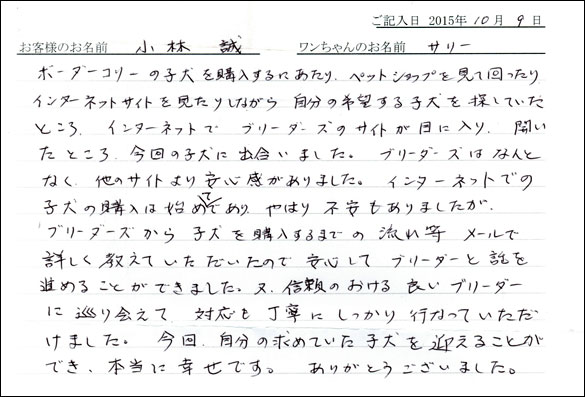 ご記入日 2015年 10月 9日
お客様のお名前 小林 誠 ワンちゃんのお名前 サリー
ボーダーコリーの子犬を購入するにあたり、ペットショップを見て回ったり
インターネットサイトを見たりしながら 自分の希望する子犬を探していた
ところ、インターネットで ブリーダーズのサイトが目に入り、開い
たところ、今回の子犬に出合いました。 ブリーダーズはなんと
なく、他のサイトより安心感がありました。インターネットでの
子犬の購入は始めてであり、やはり不安もありましたが、
ブリーダーズから子犬を購入するまでの流れ等 メールで
詳しく教えていただいたので安心して ブリーダーと話を
進めることができました。又、信頼のおける良いブリーダー
に巡り会えて、対応も丁寧にしっかり行なっていただ
けました。 今回、自分の求めていた子犬を迎えることが
でき、本当に幸せです。 ありがとうございました。